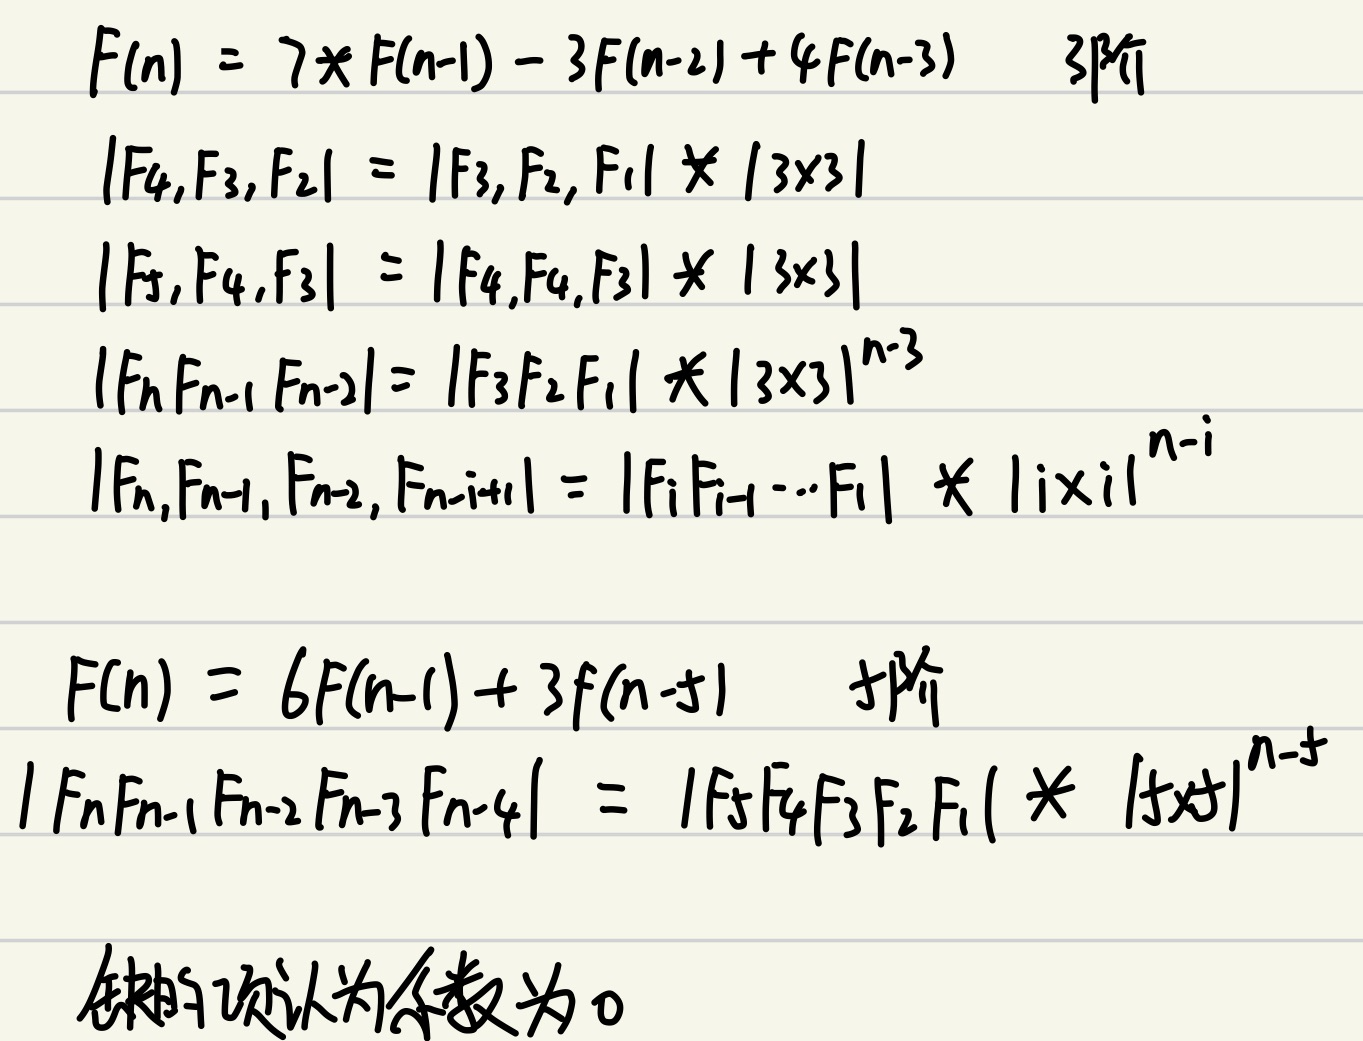 F(n) = 7* F(n-1) - 3F(n-2) + 4F(n-3) 3阶
|F4, F3, F2| = |F3, F2, F1| * |3×3|
|F5, F4, F3| = |F4, F4, F3| * |3×3|
|Fn Fn-1 Fn-2| = |F3 F2 F1| * |3×3|^n-3
|Fn, Fn-1, Fn-2, Fn-i+1| = |Fi Fi-1 ... F1| * |i×i|^n-i
F(n) = 6F(n-1) + 3f(n-5) 5阶
|Fn Fn-1 Fn-2 Fn-3 Fn-4| = |F5 F4 F3 F2 F1| * |5×5|^n-5
缺的项认为系数为0